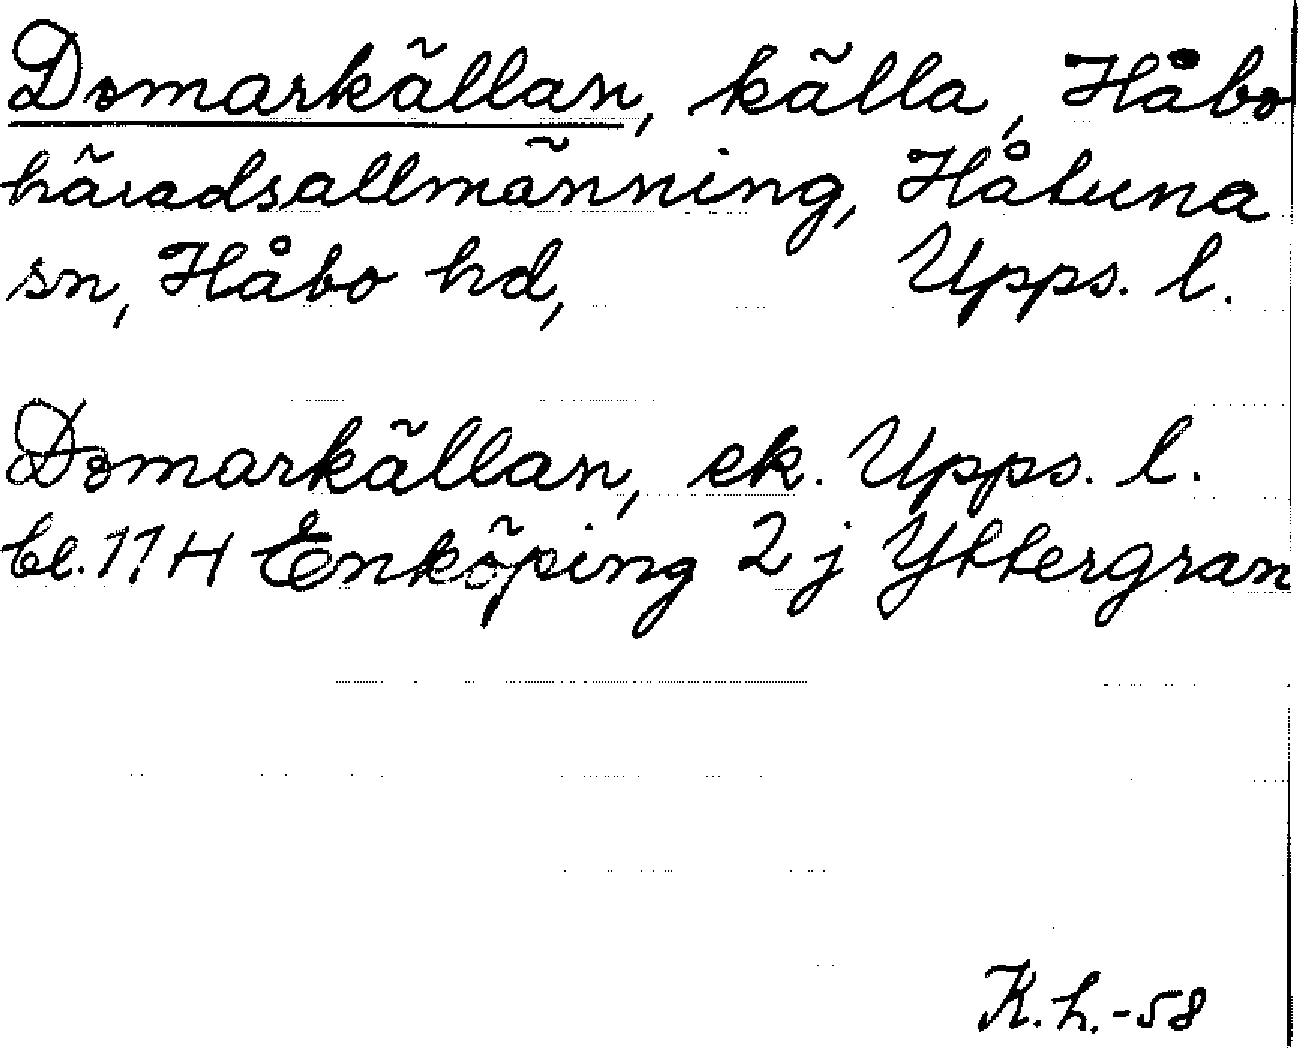 Domarkällan, källa, Håbo
häradsallmänning, Håtuna
sn, Håbo hd, Upps. l.
Domarkällan, ek. Upps. l.
bl. 11H Enköping 2j Yttergran
K.h.-58